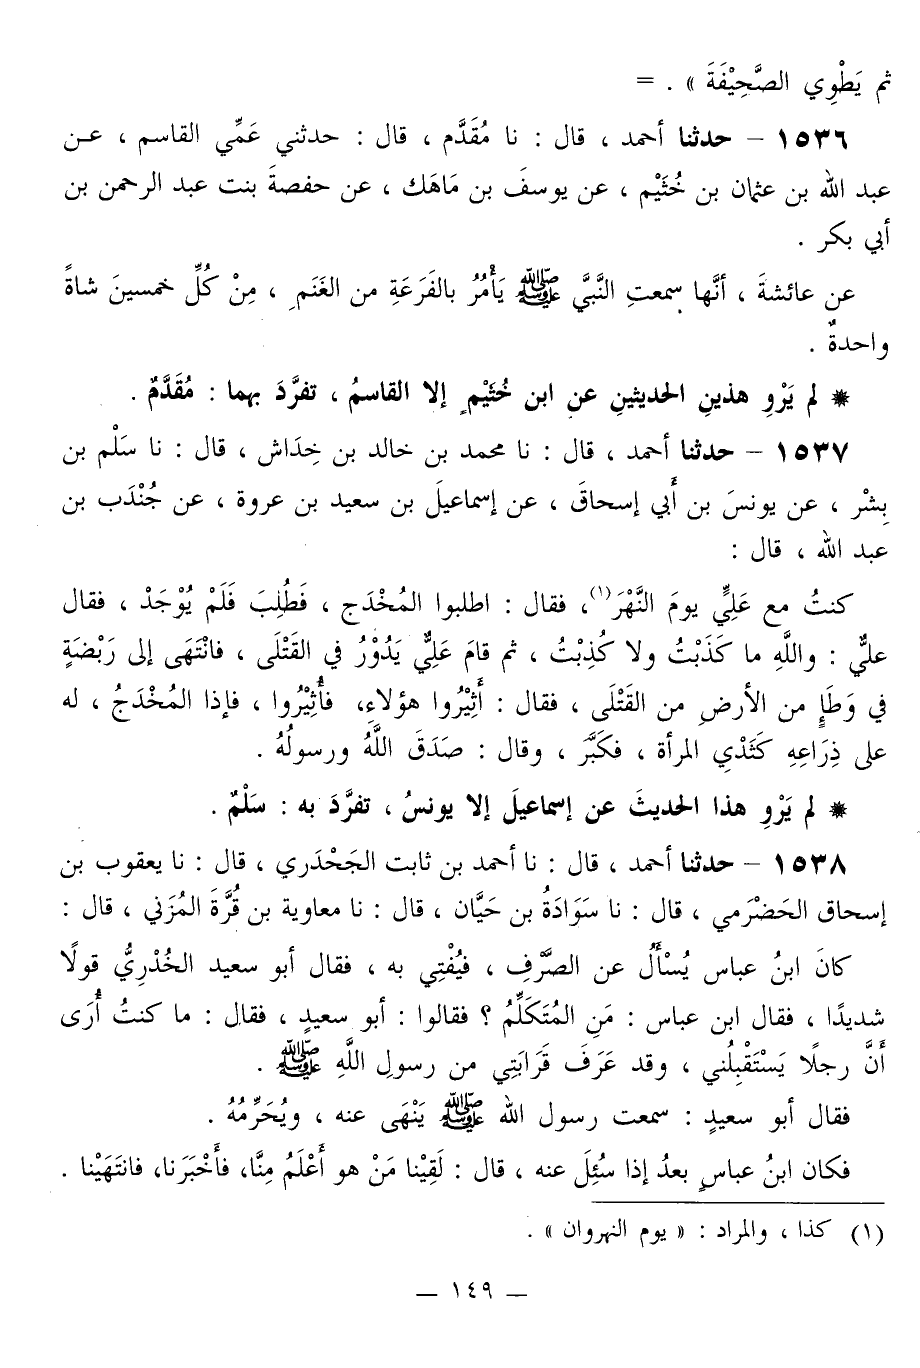 ثم يَطْوِي الصَّحِيْفَةَ » . =
١٥٣٦ – حدثنا أحمد ، قال : نا مُقَدَّم ، قال : حدثني عَمِّي القاسم ، عـن
عبد الله بن عثمان بن خُثَيْم ، عن يوسفَ بن مَاهَك ، عن حفصةَ بنت عبد الرحمن بن
أبي بكر .
عن عائشةَ ، أنَّها سمعتِ النَّبيَّ ﷺ يَأْمُرُ بالفَرَعَةِ من الغَنَمِ ، مِنْ كُلِّ خمسينَ شاةً
واحدةٌ .
* لم يَرْوِ هذينِ الحديثينِ عنِ ابن خُثَيْمٍ إلا القاسمُ ، تفرَّدَ بهما : مُقَدَّمٌ .
١٥٣٧ – حدثنا أحمد ، قال : نا محمد بن خالد بن خِدَاش ، قال : نا سَلْم بن
بِشْر ، عن يونسَ بن أَبي إسحاقَ ، عن إسماعيلَ بن سعيد بن عروة ، عن جُنْدَب بن
عبد الله ، قال :
كنتُ مع عَلِيٍّ يومَ النَّهْرَ(١)، فقال : اطلبوا المُخْدَج ، فَطُلِبَ فَلَمْ يُوْجَدْ ، فقال
عليٌّ : واللَّهِ ما كَذَبْتُ ولا كُذِبْتُ ، ثم قامَ عَلِيٌّ يَدُوْرُ في القَتْلَى ، فانْتَهَى إلى رَبْضَةٍ
في وَطَإٍ من الأرضِ من القَتْلَى ، فقال : أَثِيْرُوا هؤلاءِ، فأُثِيْرُوا ، فإذا المُخْدَجُ ، له
على ذِرَاعِهِ كَثَدْيِ المرأة ، فكَبَّرَ ، وقال : صَدَقَ اللَّهُ ورسولُهُ .
* لم يَرْوِ هذا الحديثَ عن إسماعيلَ إلا يونسُ ، تفرَّدَ به : سَلْمٌ .
١٥٣٨ – حدثنا أحمد ، قال : نا أحمد بن ثابت الجَحْدَري ، قال : نا يعقوب بن
إسحاق الحَضْرَمي ، قال : نا سَوَادَةُ بن حَيَّان ، قال : نا معاوية بن قُرَّةَ المُزَني ، قال :
كانَ ابنُ عباس يُسْأَلُ عن الصَّرْفِ ، فيُفْتِي به ، فقال أبو سعيد الخُدْرِيُّ قولًا
شديدًا ، فقال ابن عباس : مَنِ المُتَكَلِّمُ ؟ فقالوا : أبو سعيدٍ ، فقال : ما كنتُ أُرَى
أَنَّ رجلًا يَسْتَقْبِلُني ، وقد عَرَفَ قَرَابَتِي من رسولِ اللَّهِ ﷺ .
فقال أبو سعيدٍ : سمعت رسول الله ﷺ يَنْهَى عنه ، ويُحَرِّمُهُ .
فكان ابنُ عباسٍ بعدُ إذا سُئِلَ عنه ، قال : لَقِيْنا مَنْ هو أَعْلَمُ مِنَّا، فأَخْبَرَنا، فانتَهَيْنا .
(١) كذا ، والمراد : « يوم النهروان » .
— ١٤٩ —